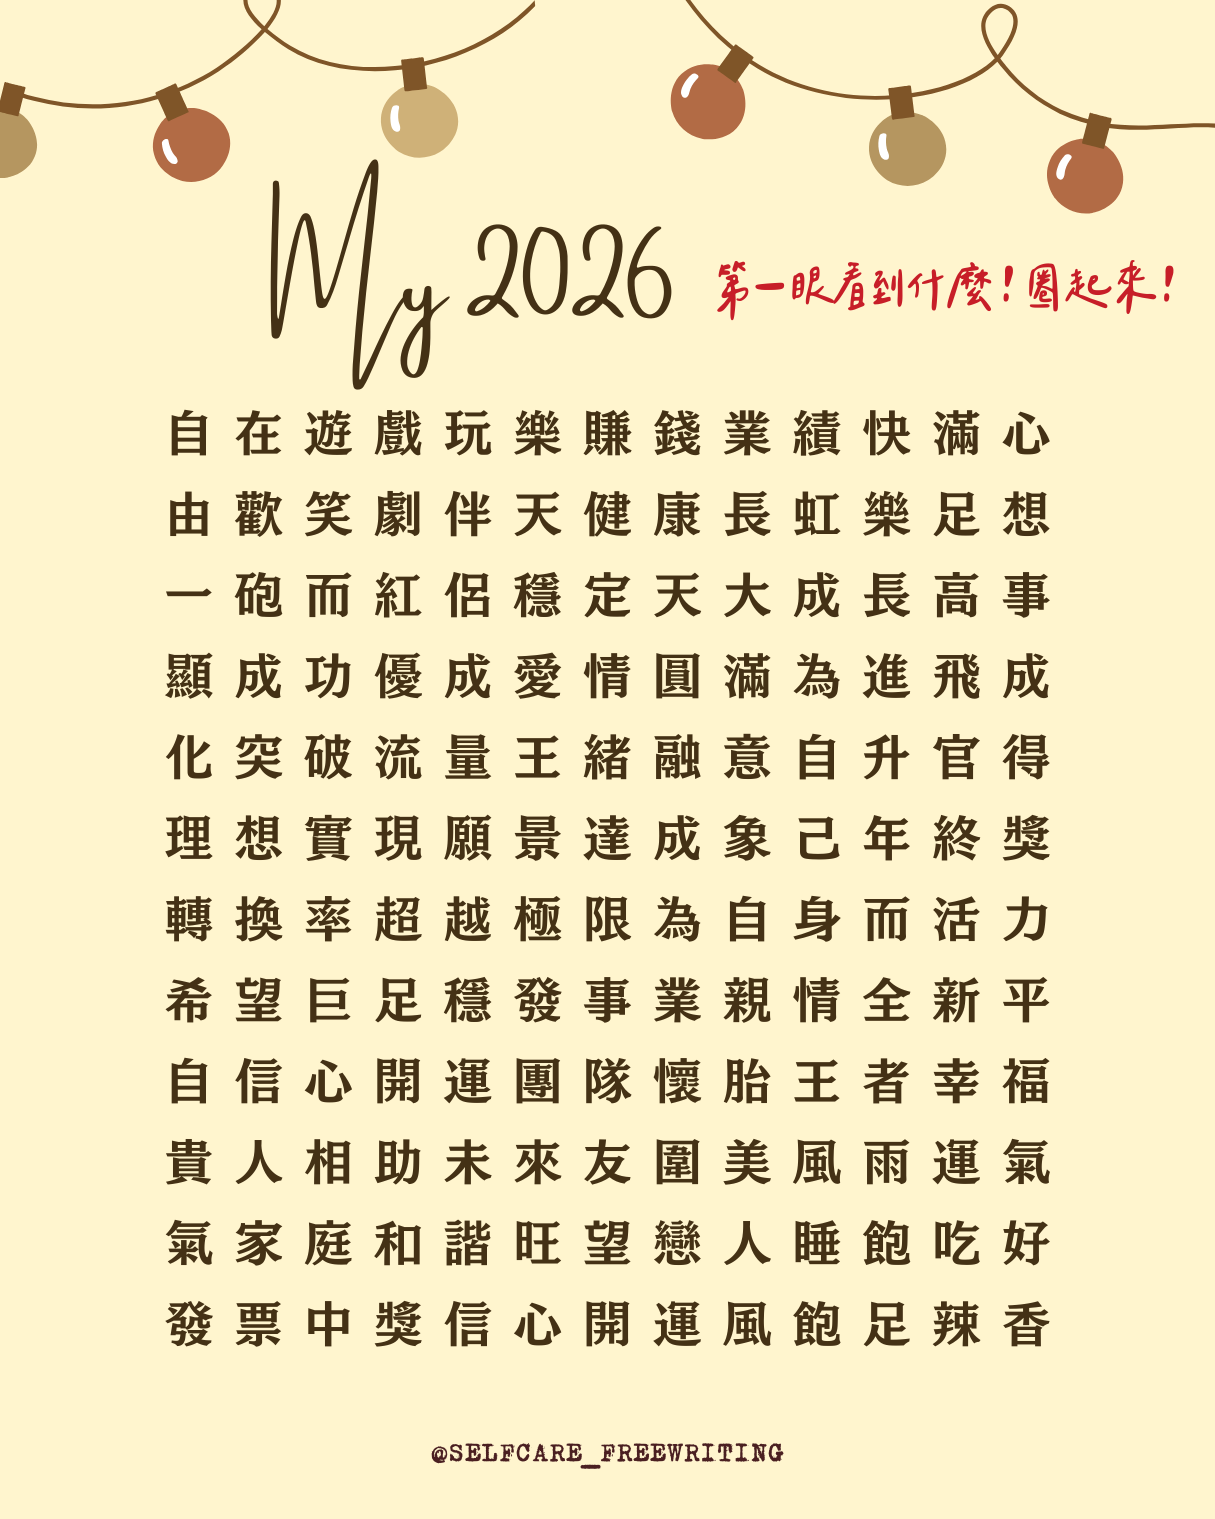 My 2026 第一眼看到什麼！圈起來！
自在遊戲玩樂賺錢業績快滿心
由歡笑劇伴天健康長虹樂足想
一砲而紅侶穩定天大成長高事
顯成功優成愛情圓滿為進飛成
化突破流量王緒融意自升官得
理想實現願景達成象己年終獎
轉換率超越極限為自身而活力
希望巨足穩發事業親情全新平
自信心開運團隊懷胎王者幸福
貴人相助未來友圍美風雨運氣
氣家庭和諧旺望戀人睡飽吃好
發票中獎信心開運風飽足辣香
@SELFCARE_FREEWRITING